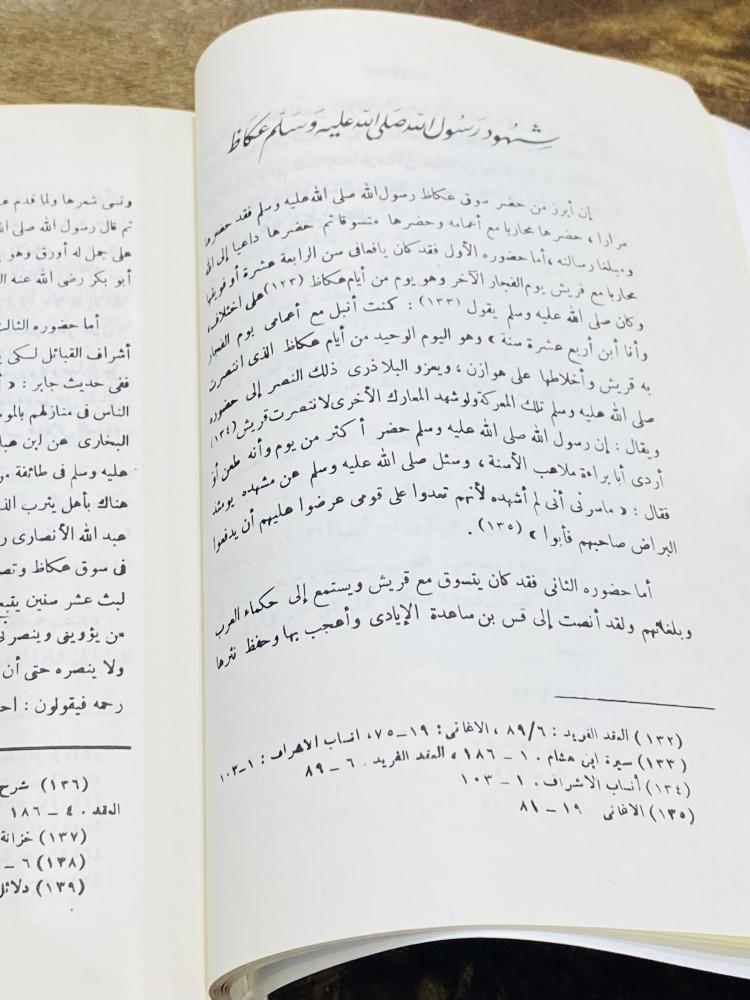 شهود رسول الله صلى الله عليه وسلم عكاظ
إن أبرز من حضر سوق عكاظ رسول الله صلى الله عليه وسلم فقد حضرها
مرارا ، حضرها محاربا مع أعمامه وحضرها متسوقا ثم حضرها داعيا إلى الله
ومبلغا رسالته ، أما حضوره الأول فقد كان يافعا فى سن الرابعة عشرة أو فويقها
محاربا مع قريش يوم الفجار الآخر وهو يوم من أيام عكاظ (١٣٢) على اختلاف ،
وكان صلى الله عليه وسلم يقول (١٣٣) : كنت أنبل مع أعمامى يوم الفجار
وأنا أبن أربع عشرة سنة » وهو اليوم الوحيد من أيام عكاظ الذى انتصرت
به قريش وأخلاطها على هوازن ، ويعزو البلاذرى ذلك النصر إلى حضوره
صلى الله عليه وسلم تلك المعركة ولو شهد المعارك الأخرى لانتصرت قريش (١٣٤)
ويقال : إن رسول الله صلى الله عليه وسلم حضر أكثر من يوم وأنه طعن أو
أردى أبا براءة ملاعب الأسنة ، وسئل صلى الله عليه وسلم عن مشهده يومئذ
فقال : « ما سرنى أنى لم أشهده لأنهم تعدوا على قومى عرضوا عليهم أن يدفعوا
البراض صاحبهم فأبوا » (١٣٥) .
أما حضوره الثانى فقد كان يتسوق مع قريش ويستمع إلى حكماء العرب
وبلغائهم ولقد أنصت إلى قس بن ساعدة الإيادى وأعجب بها وحفظ نثرها
(١٣٢) العقد الفريد : ٨٩/٦ ، الاغانى : ١٩ – ٧٥ ، انساب الأشراف : ١ – ١٠٣
(١٣٣) سيرة ابن هشام . ١ – ١٨٦ ، العقد الفريد . ٦ – ٨٩
(١٣٤) أنساب الأشراف . ١ – ١٠٣
(١٣٥) الأغانى ١٩ – ٨١
ونسى شعرها ولما قدم
ثم قال رسول الله صلى
على جمل له أورق وهو
أبو بكر رضى الله عنه
أما حضوره الثالث
أشراف القبائل لكى
ففى حديث جابر : «
الناس فى منازلهم
البخارى عن ابن
عليه وسلم فى طائفة
هناك بأهل يثرب
عبد الله الأنصارى
فى سوق عكاظ
لبث عشر سنين
من يؤوينى
ولا ينصره حتى أن
رحمه فيقولون :
(١٣٦) شرح
العقد . ٤ – ١٨٦
(١٣٧) خزانة
(١٣٨) ٦ –
(١٣٩)